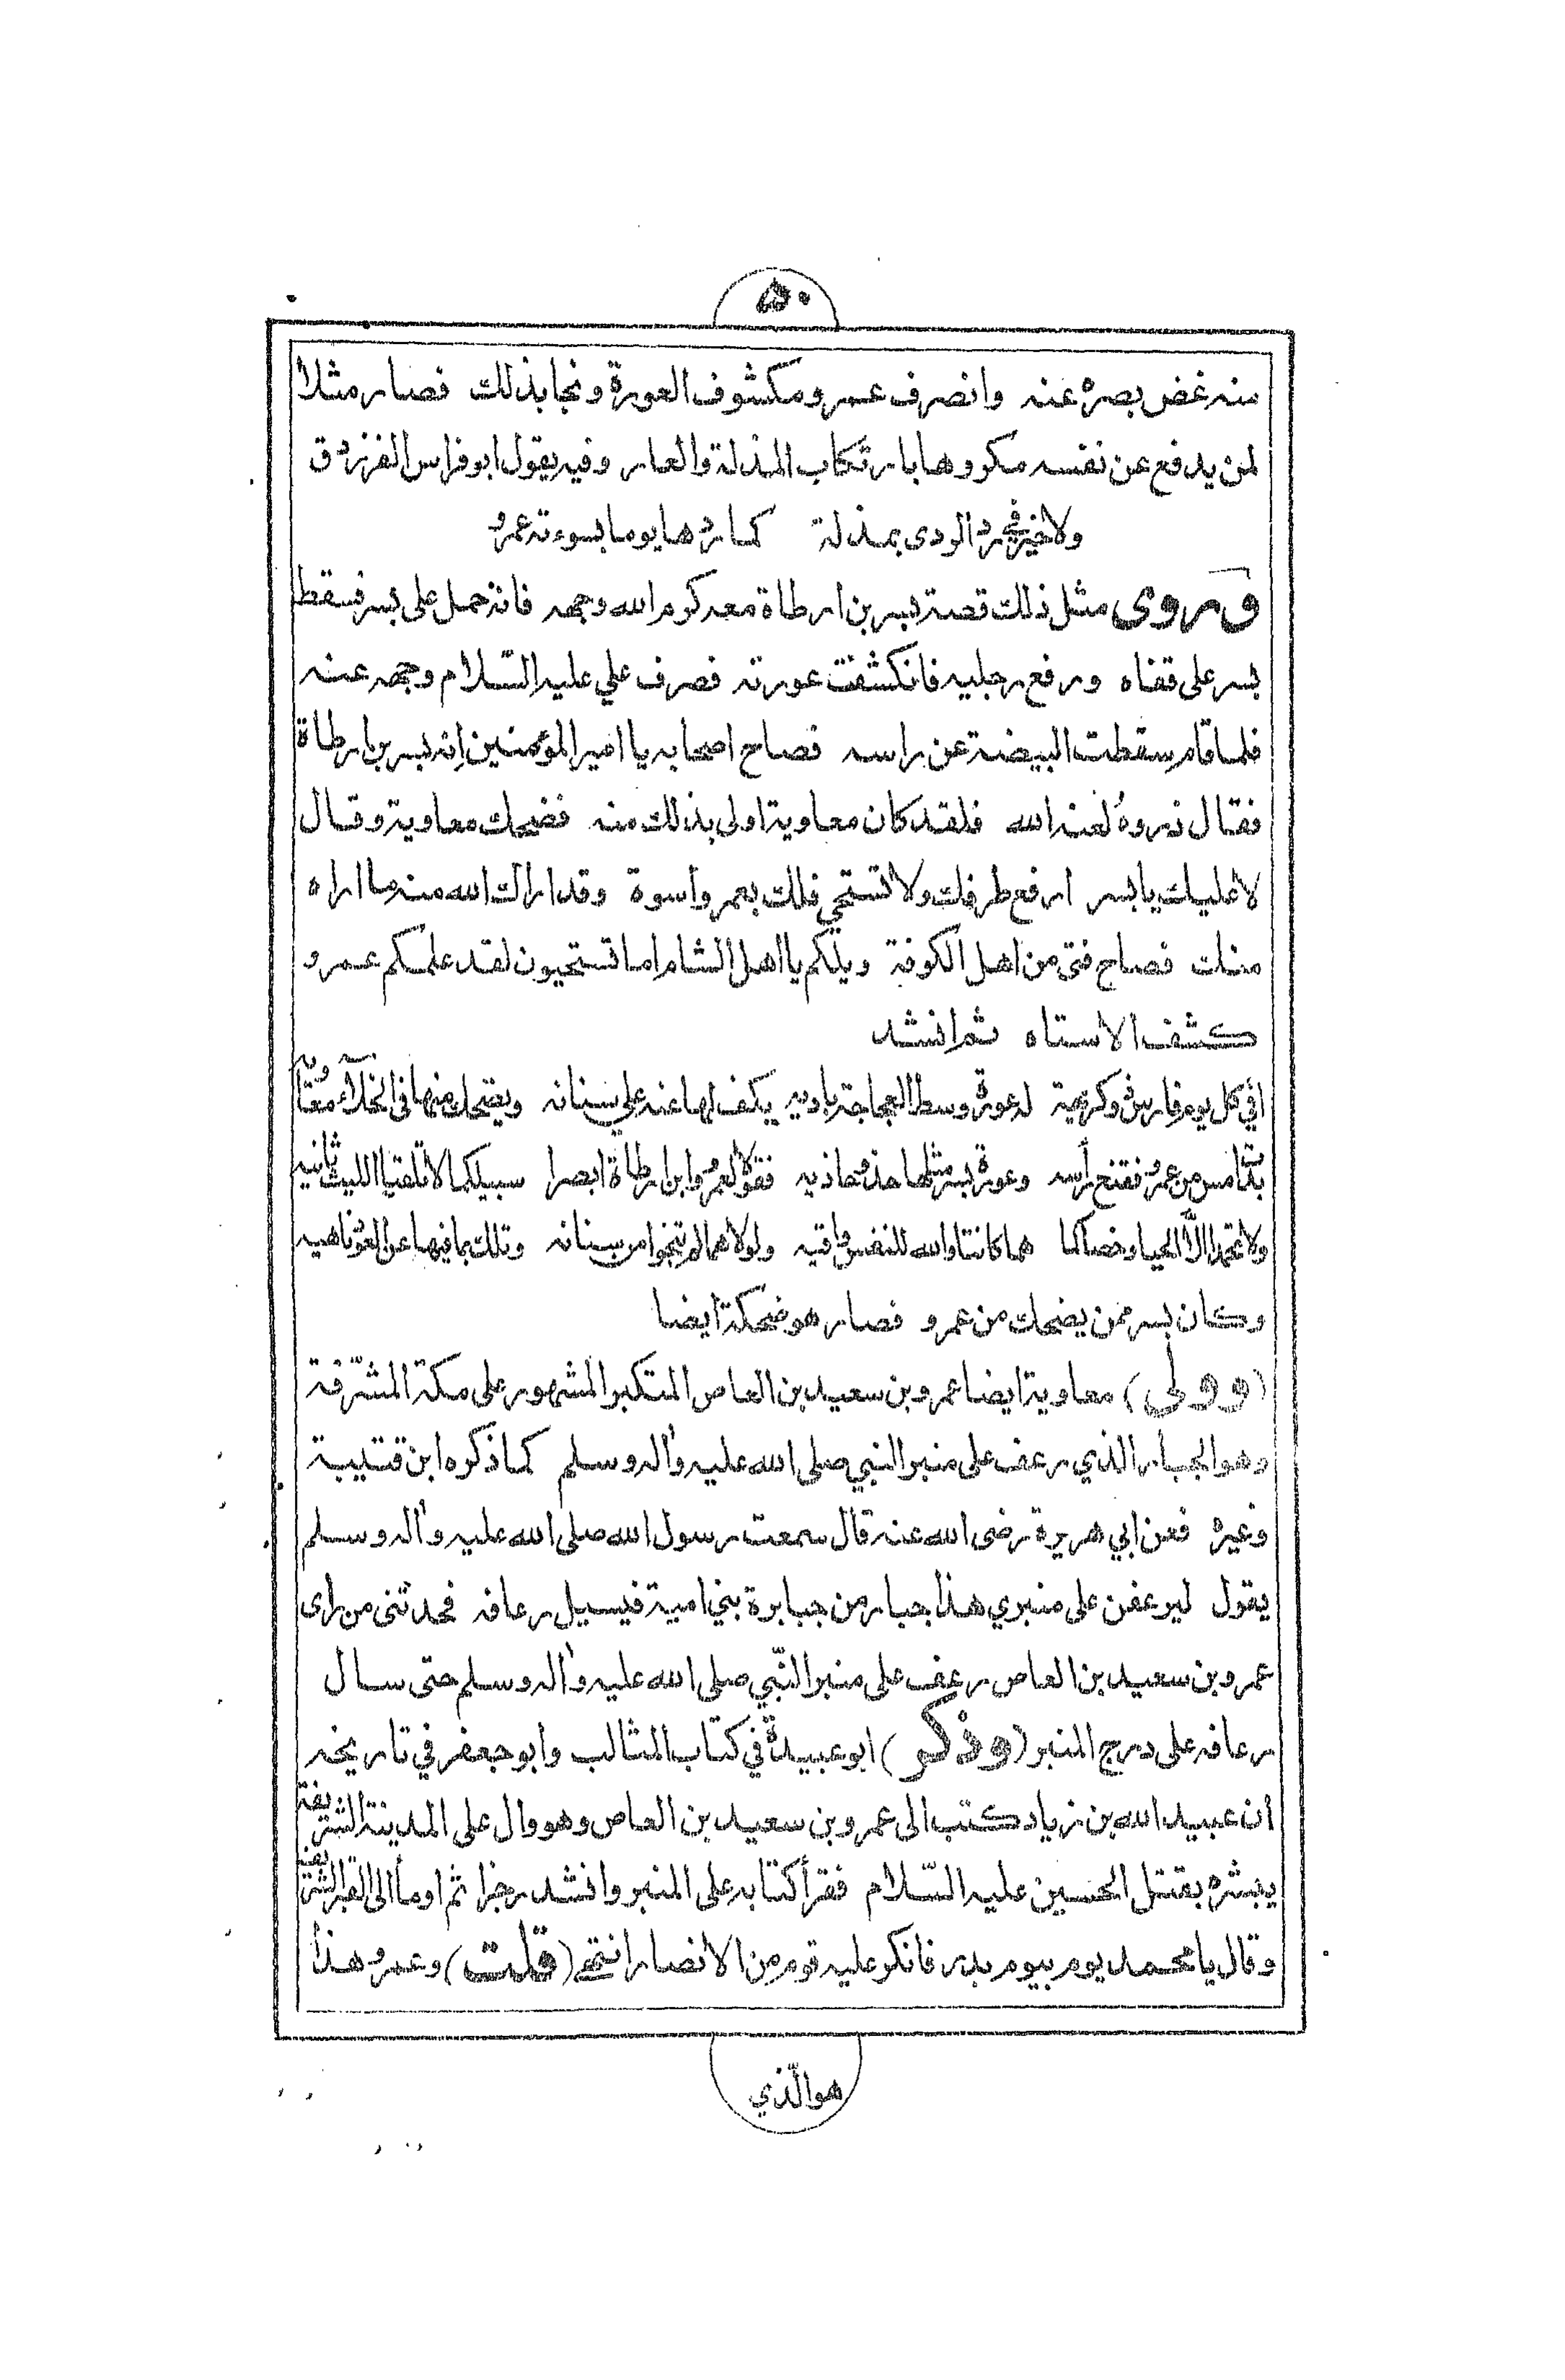 ٥٠
منه غض بصره عنه وانصرف عمرو مكشوف العورة ونجا بذلك فصار مثلا
لمن يدفع عن نفسه مكروها بارتكاب المذلة والعار وفيه يقول ابو فراس الفرزدق
ولا خير في رد الردى بمذلة كما ردها يوما بسوءته عمرو
وروى مثل ذلك قصة بسر بن ارطاة معه كرم الله وجهه فانه حمل على بسر فسقط
بسر على قفاه ورفع رجليه فانكشفت عورته فصرف علي عليه السّلام وجهه عنه
فلما قام سقطت البيضة عن راسه فصاح اصحابه يا امير المؤمنين إنه بسر بن ارطاة
فقال ذروهُ لعنه الله فلقد كان معاوية اولى بذلك منه فضحك معاوية وقال
لا عليك يا بسر ارفع طرفك ولا تستحي فلك بعمرو أسوة وقد اراك الله منه ما اراه
منك فصاح فتى من اهل الكوفة ويلكم يا اهل الشام اما تستحيون لقد علمكم عمرو
كشف الاستاه ثم انشد
أفي كل يوم فارس ذو كريهة له عورة وسط العجاجة باديه يكف لها عنه علي سنانه ويضحك منها في الخلآء معٰويه
بدت امس من عمرو فقنع رأسه وعورة بسر مثلها حذو حاذيه فقولا لعمرو وابن ارطاة ابصرا سبيلكما لا تلقيا الليث ثانيه
ولا تحمدا الّا الحيا وخصاكما هما كانتا والله للنفس واقيه ولولاهما لم تنجوا من سنانه وتلك بما فيها عن العود ناهيه
وكان بسر ممن يضحك من عمرو فصار هو ضحكة ايضا
(وولى) معاوية ايضا عمرو بن سعيد بن العاص المتكبر المشهور على مكة المشرّفة
وهو الجبار الذي رعف على منبر النبي صلى الله عليه وآله وسلم كما ذكره ابن قتيبة
وغيره فعن ابي هريرة رضى الله عنه قال سمعت رسول الله صلى الله عليه وآله وسلم
يقول ليرعفن على منبري هذا جبار من جبابرة بني امية فيسيل رعافه فحدثنى من رأى
عمرو بن سعيد بن العاص رعف على منبر النّبي صلى الله عليه وآله وسلم حتى سال
رعافه على درج المنبر (وذكر) ابو عبيدة في كتاب المثالب وابو جعفر في تاريخه
أن عبيد الله بن زياد كتب الى عمرو بن سعيد بن العاص وهو وال على المدينة الشريفة
يبشره بقتل الحسين عليه السّلام فقرأ كتابه على المنبر وانشد رجزا ثم اومأ الى القبر الشريف
وقال يا محمد يوم بيوم بدر فانكر عليه قوم من الانصار انتهى (قلت) وعمرو هذا
هو الّذي